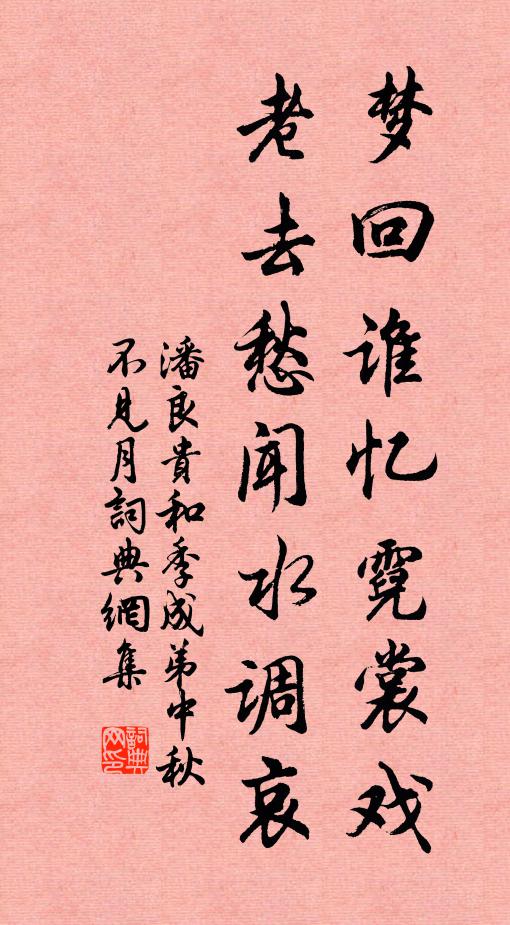 梦回谁忆霓裳戏
老去愁闻水调哀
潘良貴和季成弟中秋
不见月詞典網集
詞典
网印